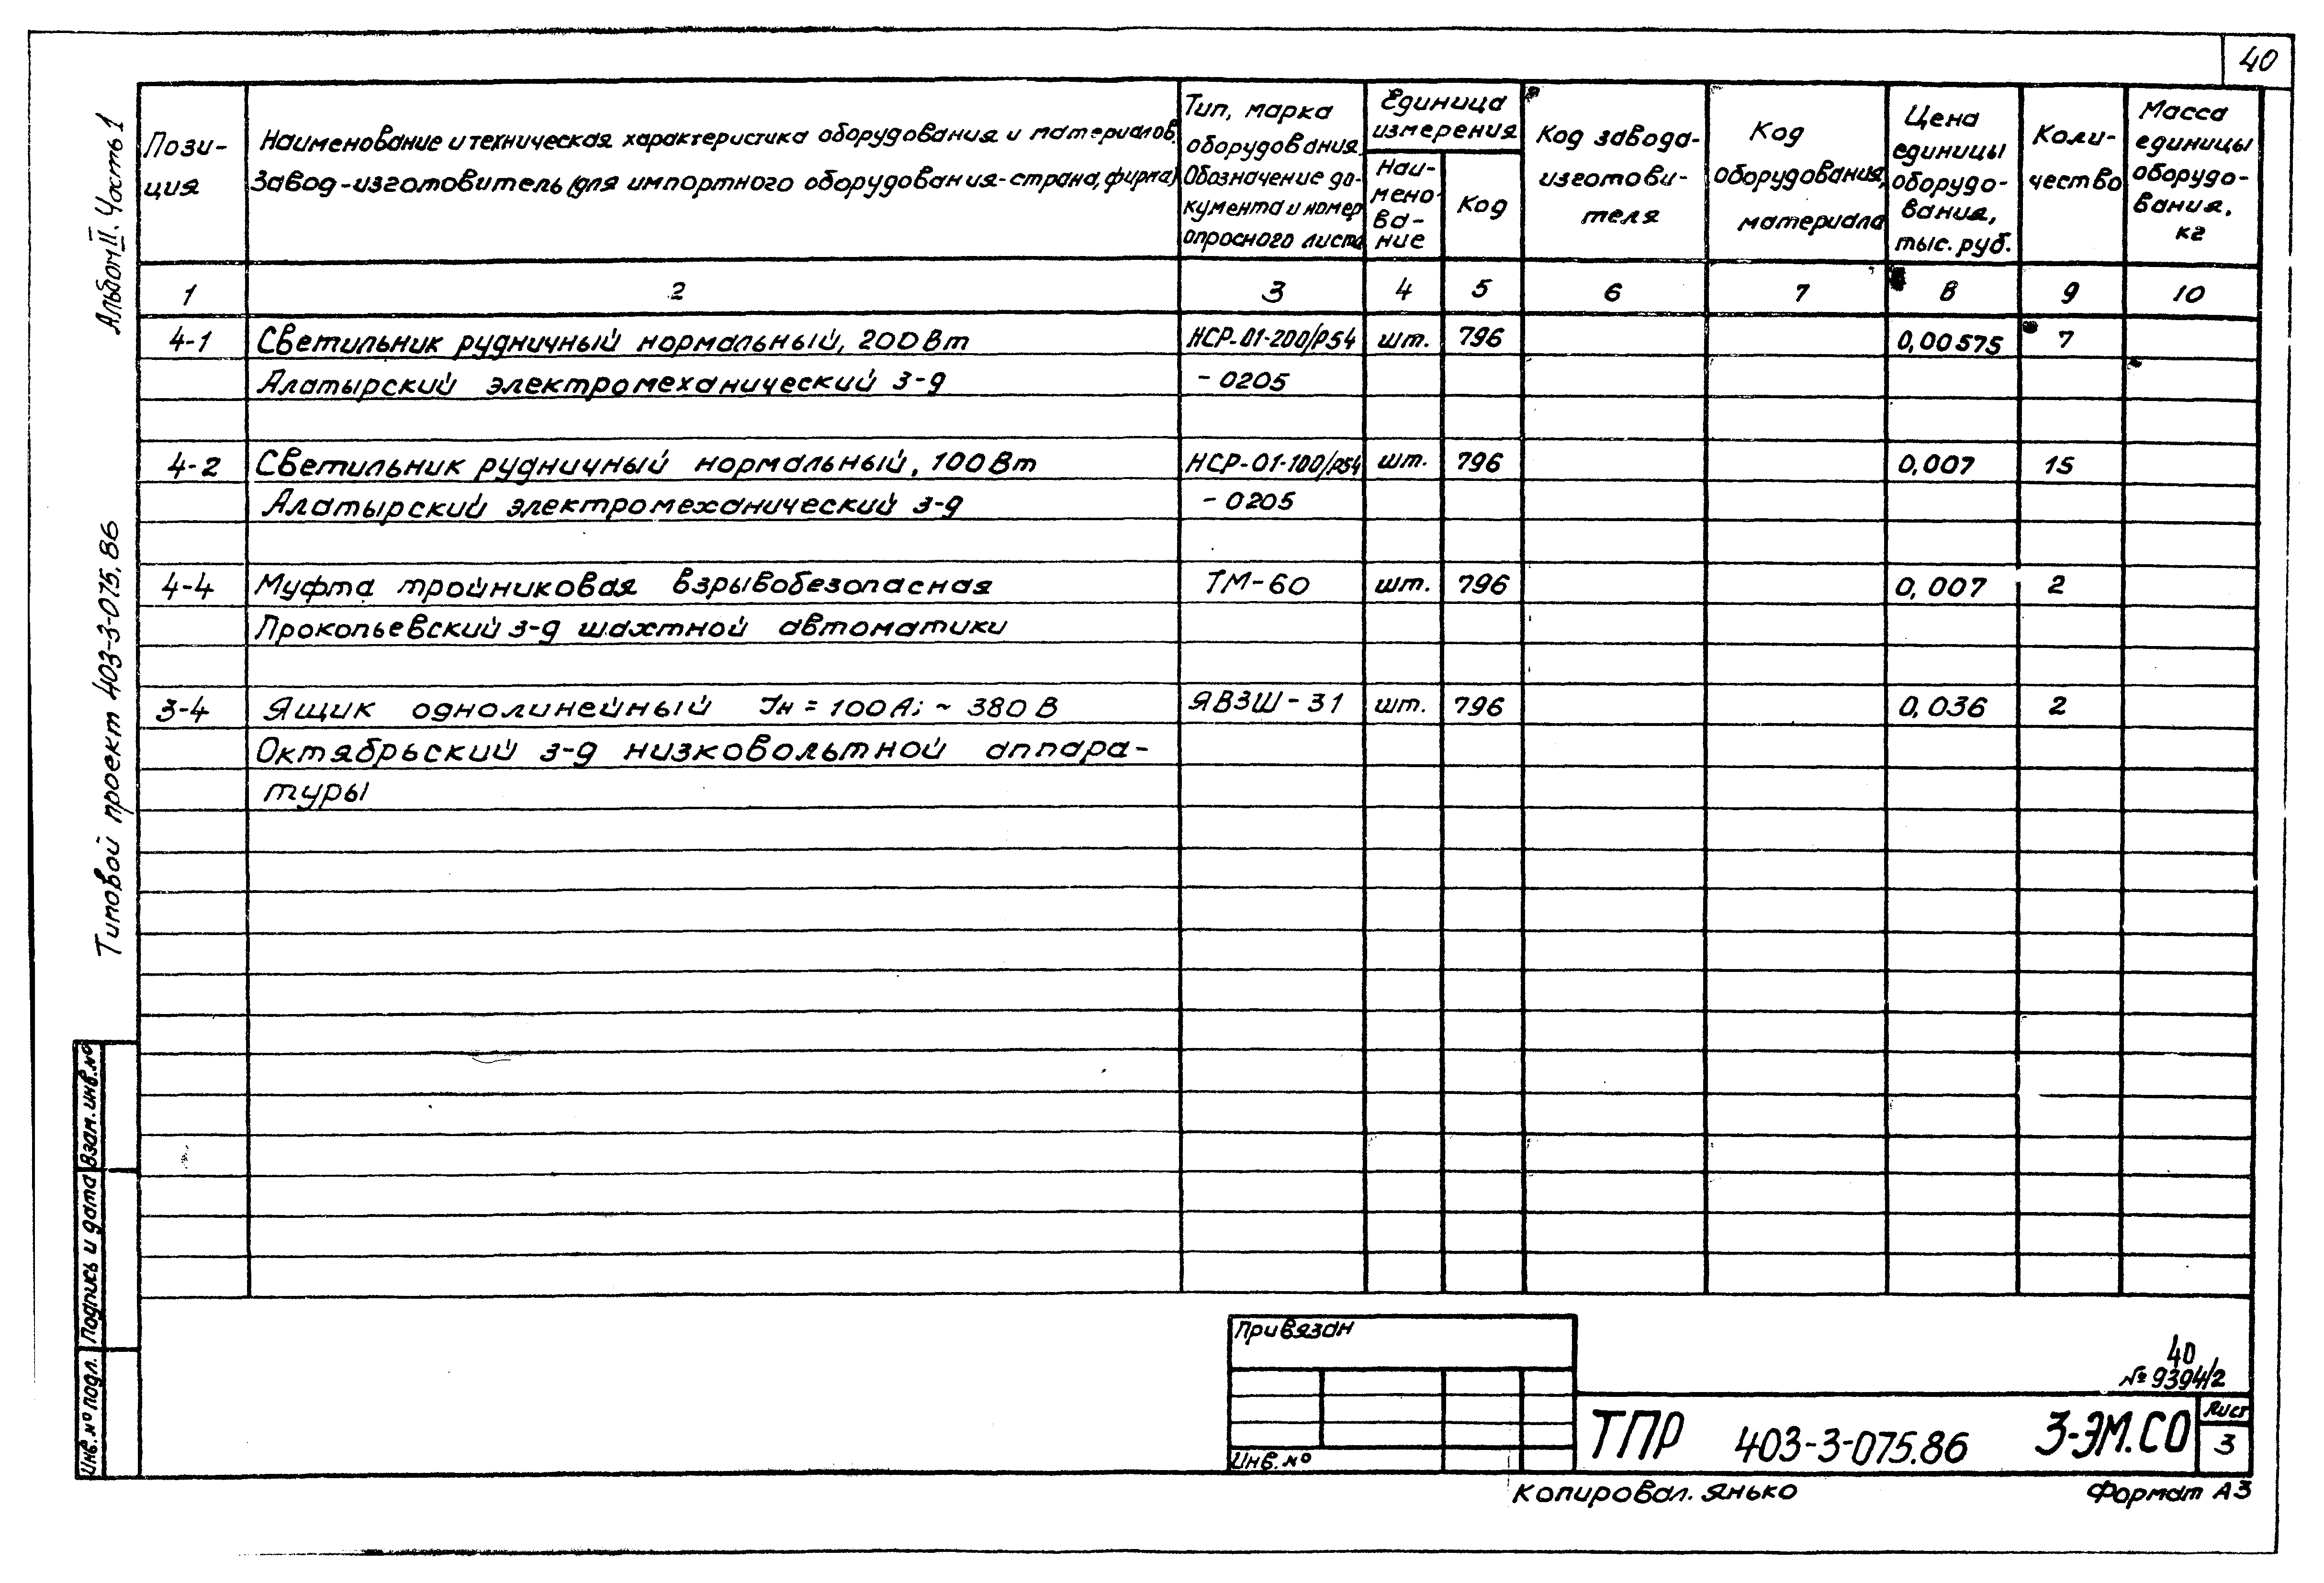 40
Альбом II. Часть 1
Типовой проект 403-3-075.86
Пози-
ция
Наименование и техническая характеристика оборудования и материалов.
Завод-изготовитель (для импортного оборудования-страна, фирма)
Тип, марка
оборудования.
Обозначение до-
кумента и номер
опросного листа
Единица
измерения
Наи-
мено-
ва-
ние
Код
Код завода-
изготови-
теля
Код
оборудования,
материала
Цена
единицы
оборудо-
вания,
тыс. руб.
Коли-
чество
Масса
единицы
оборудо-
вания,
кг
1 2 3 4 5 6 7 8 9 10
4-1 Светильник рудничный нормальный, 200Вт НСР-01-200/Р54 шт. 796 0,00575 7
Алатырский электромеханический з-д -0205
4-2 Светильник рудничный нормальный, 100Вт НСР-01-100/Р54 шт. 796 0,007 15
Алатырский электромеханический з-д -0205
4-4 Муфта тройниковая взрывобезопасная ТМ-60 шт. 796 0,007 2
Прокопьевский з-д шахтной автоматики
3-4 Ящик однолинейный Iн = 100А; ~ 380В ЯВЗШ-31 шт. 796 0,036 2
Октябрьский з-д низковольтной аппара-
туры
Взам. инв. №
Подпись и дата
Инв. № подл.
Привязан
Инв. №
40
№ 9394/2
ТПР 403-3-075.86 3-ЭМ.СО
Лист
3
Копировал. Янько Формат А3